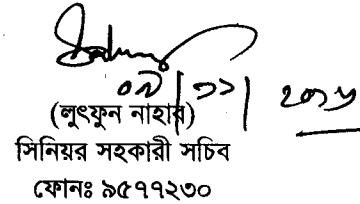 ০৯/১১/২০১৮
(লুৎফুন নাহার)
সিনিয়র সহকারী সচিব
ফোনঃ ৯৫৭৭২৩০